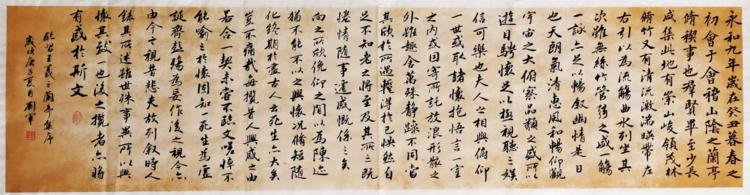 永和九年歲在癸丑暮春之
初會于會稽山陰之蘭亭
脩稧事也群賢畢至少長
咸集此地有崇山峻領茂林
脩竹又有清流激湍暎帶左
右引以為流觴曲水列坐其
次雖無絲竹管絃之盛一觴
一詠亦足以暢叙幽情是日
也天朗氣清惠風和暢仰觀
宇宙之大俯察品類之盛所以
遊目騁懷足以極視聽之娛
信可樂也夫人之相與俯仰
一世或取諸懷抱悟言一室
之內或因寄所託放浪形骸之
外雖趣舍萬殊靜躁不同當
其欣於所遇暫得於己怏然自
足不知老之將至及其所之既
惓情隨事遷感慨係之矣
向之所欣俛仰之間以為陳迹
猶不能不以之興懷況脩短隨
化終期於盡古人云死生亦大矣
豈不痛哉每攬昔人興感之由
若合一契未嘗不臨文嗟悼不
能喻之於懷固知一死生為虛
誕齊彭殤為妄作後之視今亦
由今之視昔悲夫故列叙時人
錄其所述雖世殊事異所以興
懷其致一也後之攬者亦將
有感於斯文
臨王羲之蘭亭集序
歲次庚子夏月劉軍